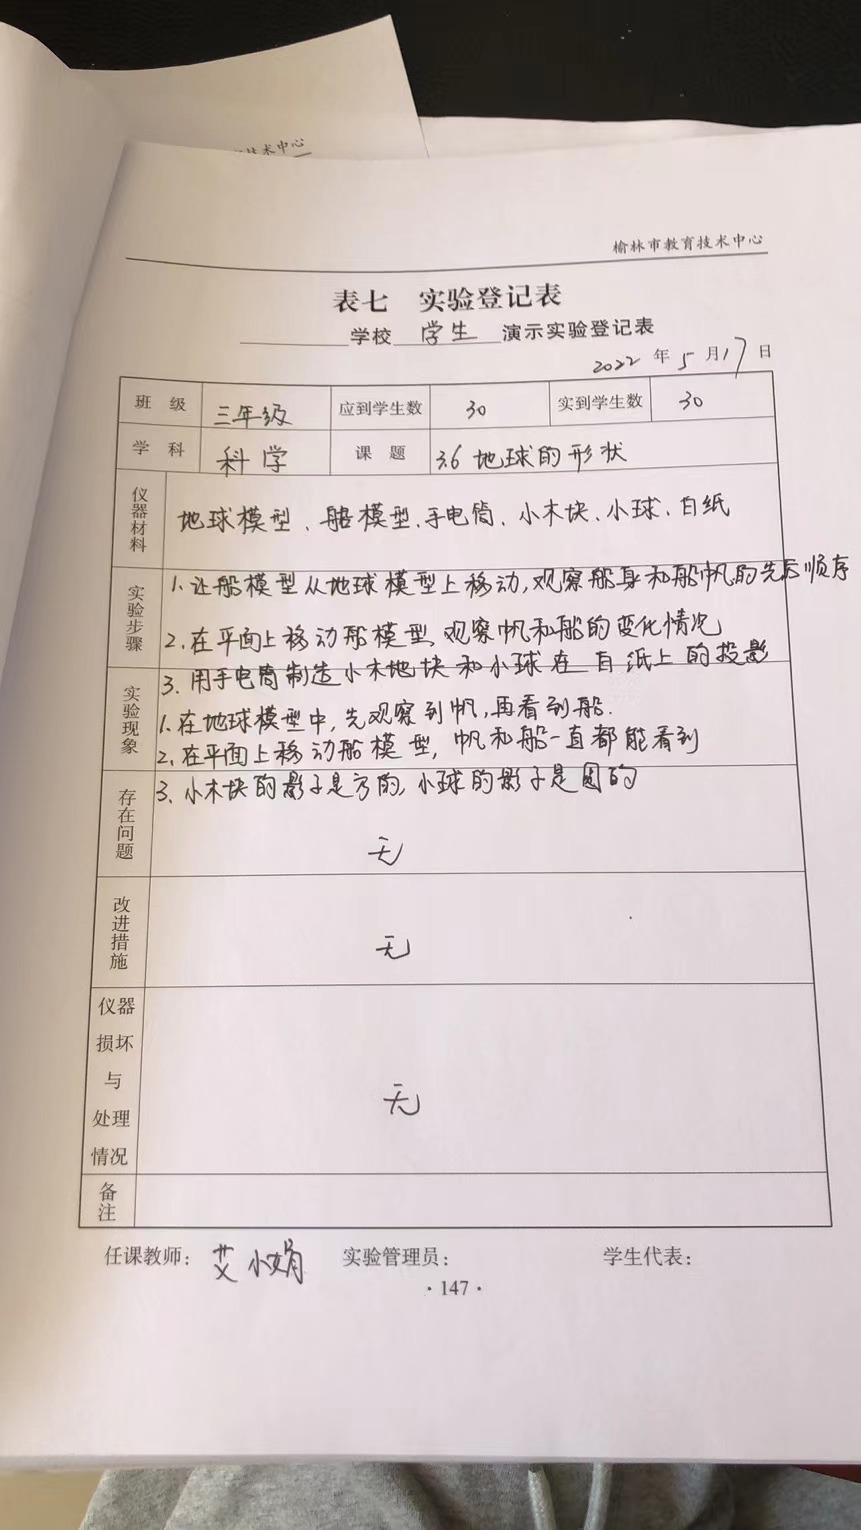 技术中心
榆林市教育技术中心
表七 实验登记表
学校 学生 演示实验登记表
2022 年 5 月 17 日
班 级 三年级 应到学生数 30 实到学生数 30
学 科 科学 课 题 3.6 地球的形状
仪器材料 地球模型、船模型、手电筒、小木块、小球、白纸
实验步骤
1. 让船模型从地球模型上移动,观察船身和船帆的先后顺序
2. 在平面上移动船模型,观察帆和船的变化情况
3. 用手电筒制造小木地块和小球在白纸上的投影
实验现象
1. 在地球模型中,先观察到帆,再看到船.
2. 在平面上移动船模型,帆和船一直都能看到
3. 小木块的影子是方的,小球的影子是圆的
存在问题
无
改进措施
无
仪器
损坏
与
处理
情况
无
备注
任课教师: 艾小娟 实验管理员: 学生代表:
· 147 ·